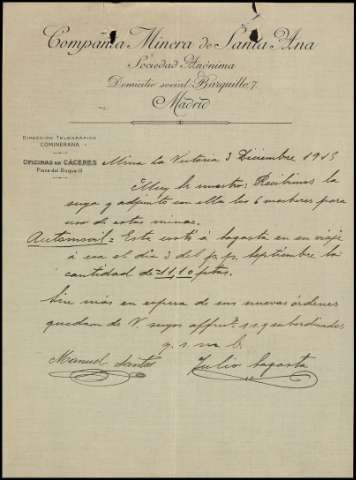 Compañia Minera de Santa Ana
Sociedad Anónima
Domicilio social: Barquillo, 7
Madrid
DIRECCIÓN TELEGRÁFICA
COMINERANA
OFICINAS EN CÁCERES
Plaza del Duque, 11
Mina La Victoria 3 Diciembre 1915
Muy Sr nuestro: Recibimos la
suya y adjunto con ella los 6 para
uso de estas minas.
Automóvil = Este costó á Sagasta en su viaje
á esa el dia 3 del Septiembre la
cantidad de 11,10 ptas.
Sin más en espera de sus nuevas órdenes
quedamos de V. suyos affmos s. s. y subordinados
q. s. m. b.
Manuel Santos Julio Sagasta